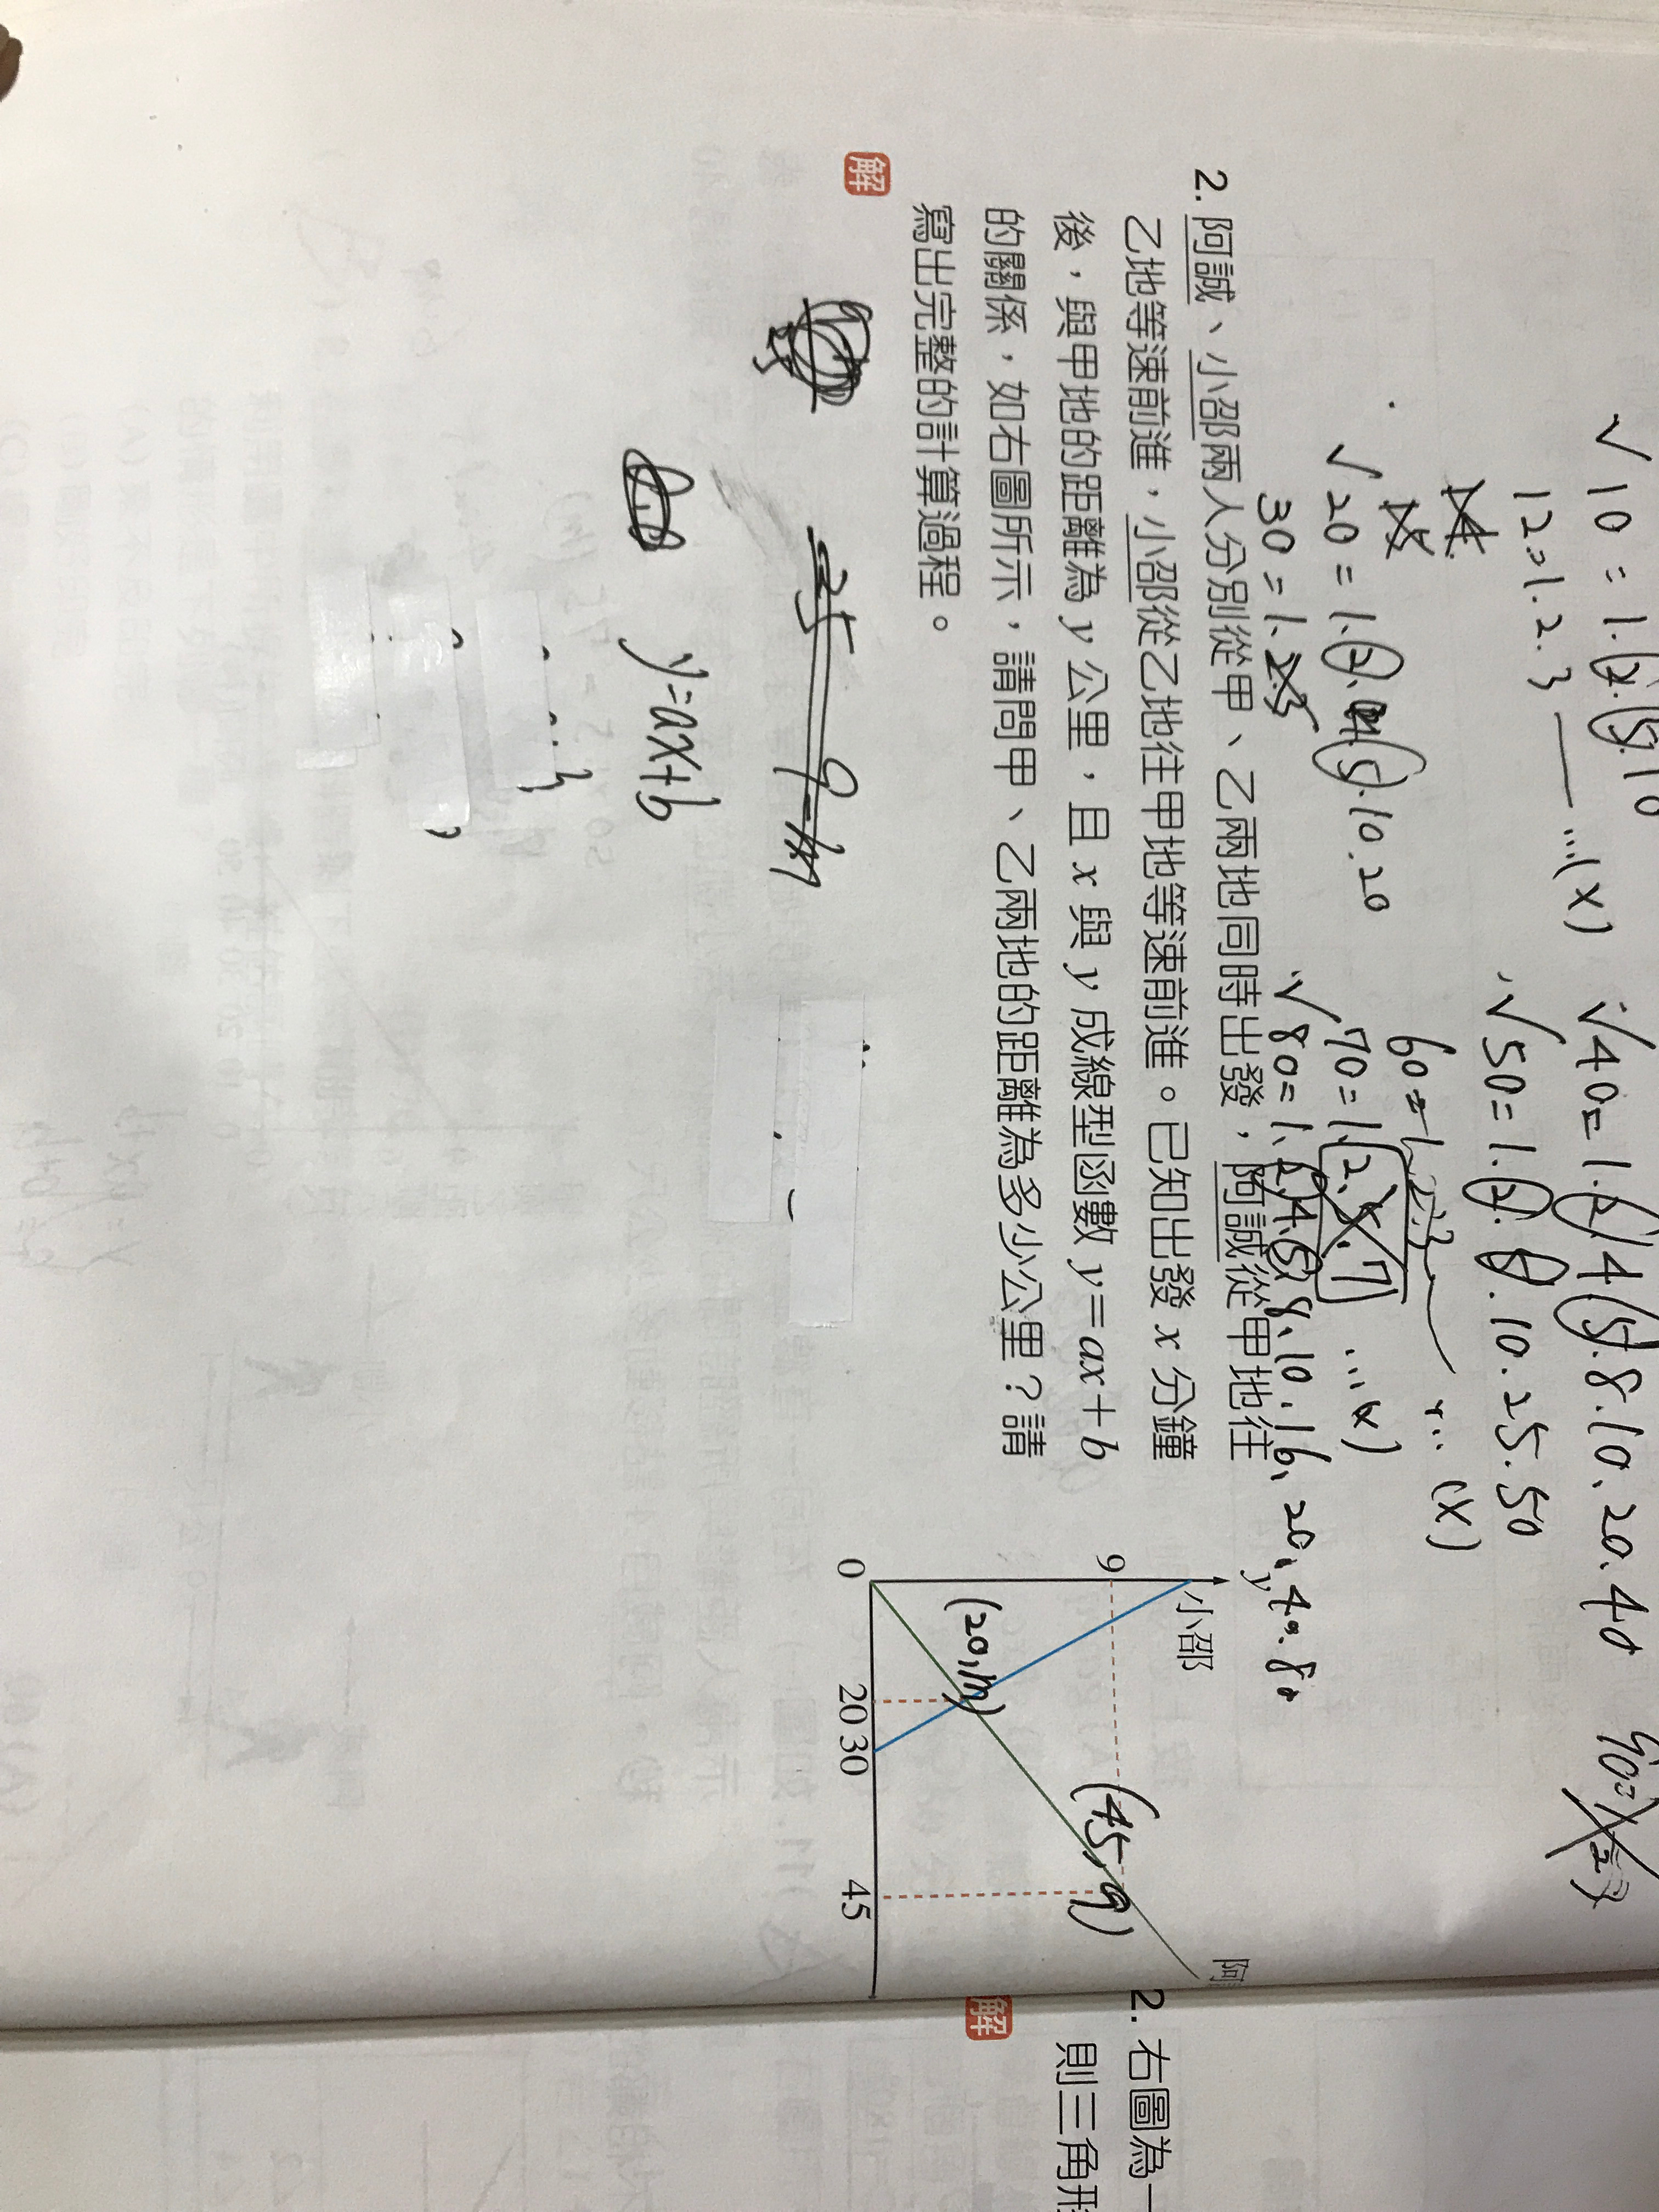 √ 10 = 1.2.5.10
12=1.2.3 —— …(×)
√ 20 = 1.2.4.5.10.20
30 = 1.2.3
√ 40 = 1.2.4.5.8.10.20.40
√ 50 = 1.2.5.10.25.50
60 = 1.2.3 … (×)
70 = 1.2.5.7 …(×)
√ 80 = 1.2.4.5.8.10.16.20.40.80
2. 阿誠、小邵兩人分別從甲、乙兩地同時出發,阿誠從甲地往
乙地等速前進,小邵從乙地往甲地等速前進。已知出發 x 分鐘
後,與甲地的距離為 y 公里,且 x 與 y 成線型函數 y=ax+b
的關係,如右圖所示,請問甲、乙兩地的距離為多少公里?請
寫出完整的計算過程。
解
25 9-m
y=ax+b
y
小邵
阿
9
(45,9)
(20,m)
0
20 30
45
2. 右圖為一
則三角形
解